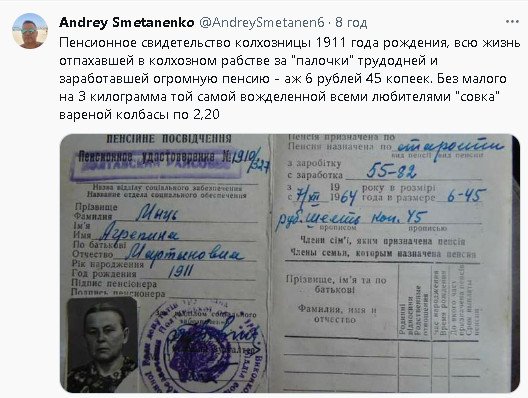 Andrey Smetanenko @AndreySmetanen6 · 8 год
Пенсионное свидетельство колхозницы 1911 года рождения, всю жизнь
отпахавшей в колхозном рабстве за "палочки" трудодней и
заработавшей огромную пенсию - аж 6 рублей 45 копеек. Без малого
на 3 килограмма той самой вожделенной всеми любителями "совка"
вареной колбасы по 2,20
ПЕНСІЙНЕ ПОСВІДЧЕННЯ
Пенсионное удостоверение №1910/327
Назва відділу соціального забезпечення
Название отдела социального обеспечения
Прізвище
Фамилия
Ім'я
Имя
По батькові
Отчество Мартыновна
Рік народження
Год рождения 1911
Підпис пенсіонера
Подпись пенсионера
Пенсія призначена по
Пенсия назначена по старости
вид пенсії вид пенсии
з заробітку
с заработка 55-82
з 19 року в розмірі
с 1964 года в размере 6-45
руб. шесть коп. 45
прописью
Члени сім'ї, яким призначена пенсія
Члены семьи, которым назначена пенсия
Прізвище, ім'я та по
батькові
Фамилия, имя и
отчество
Родинні
відносини
Родственные
отношения
Час народження
Время рождения